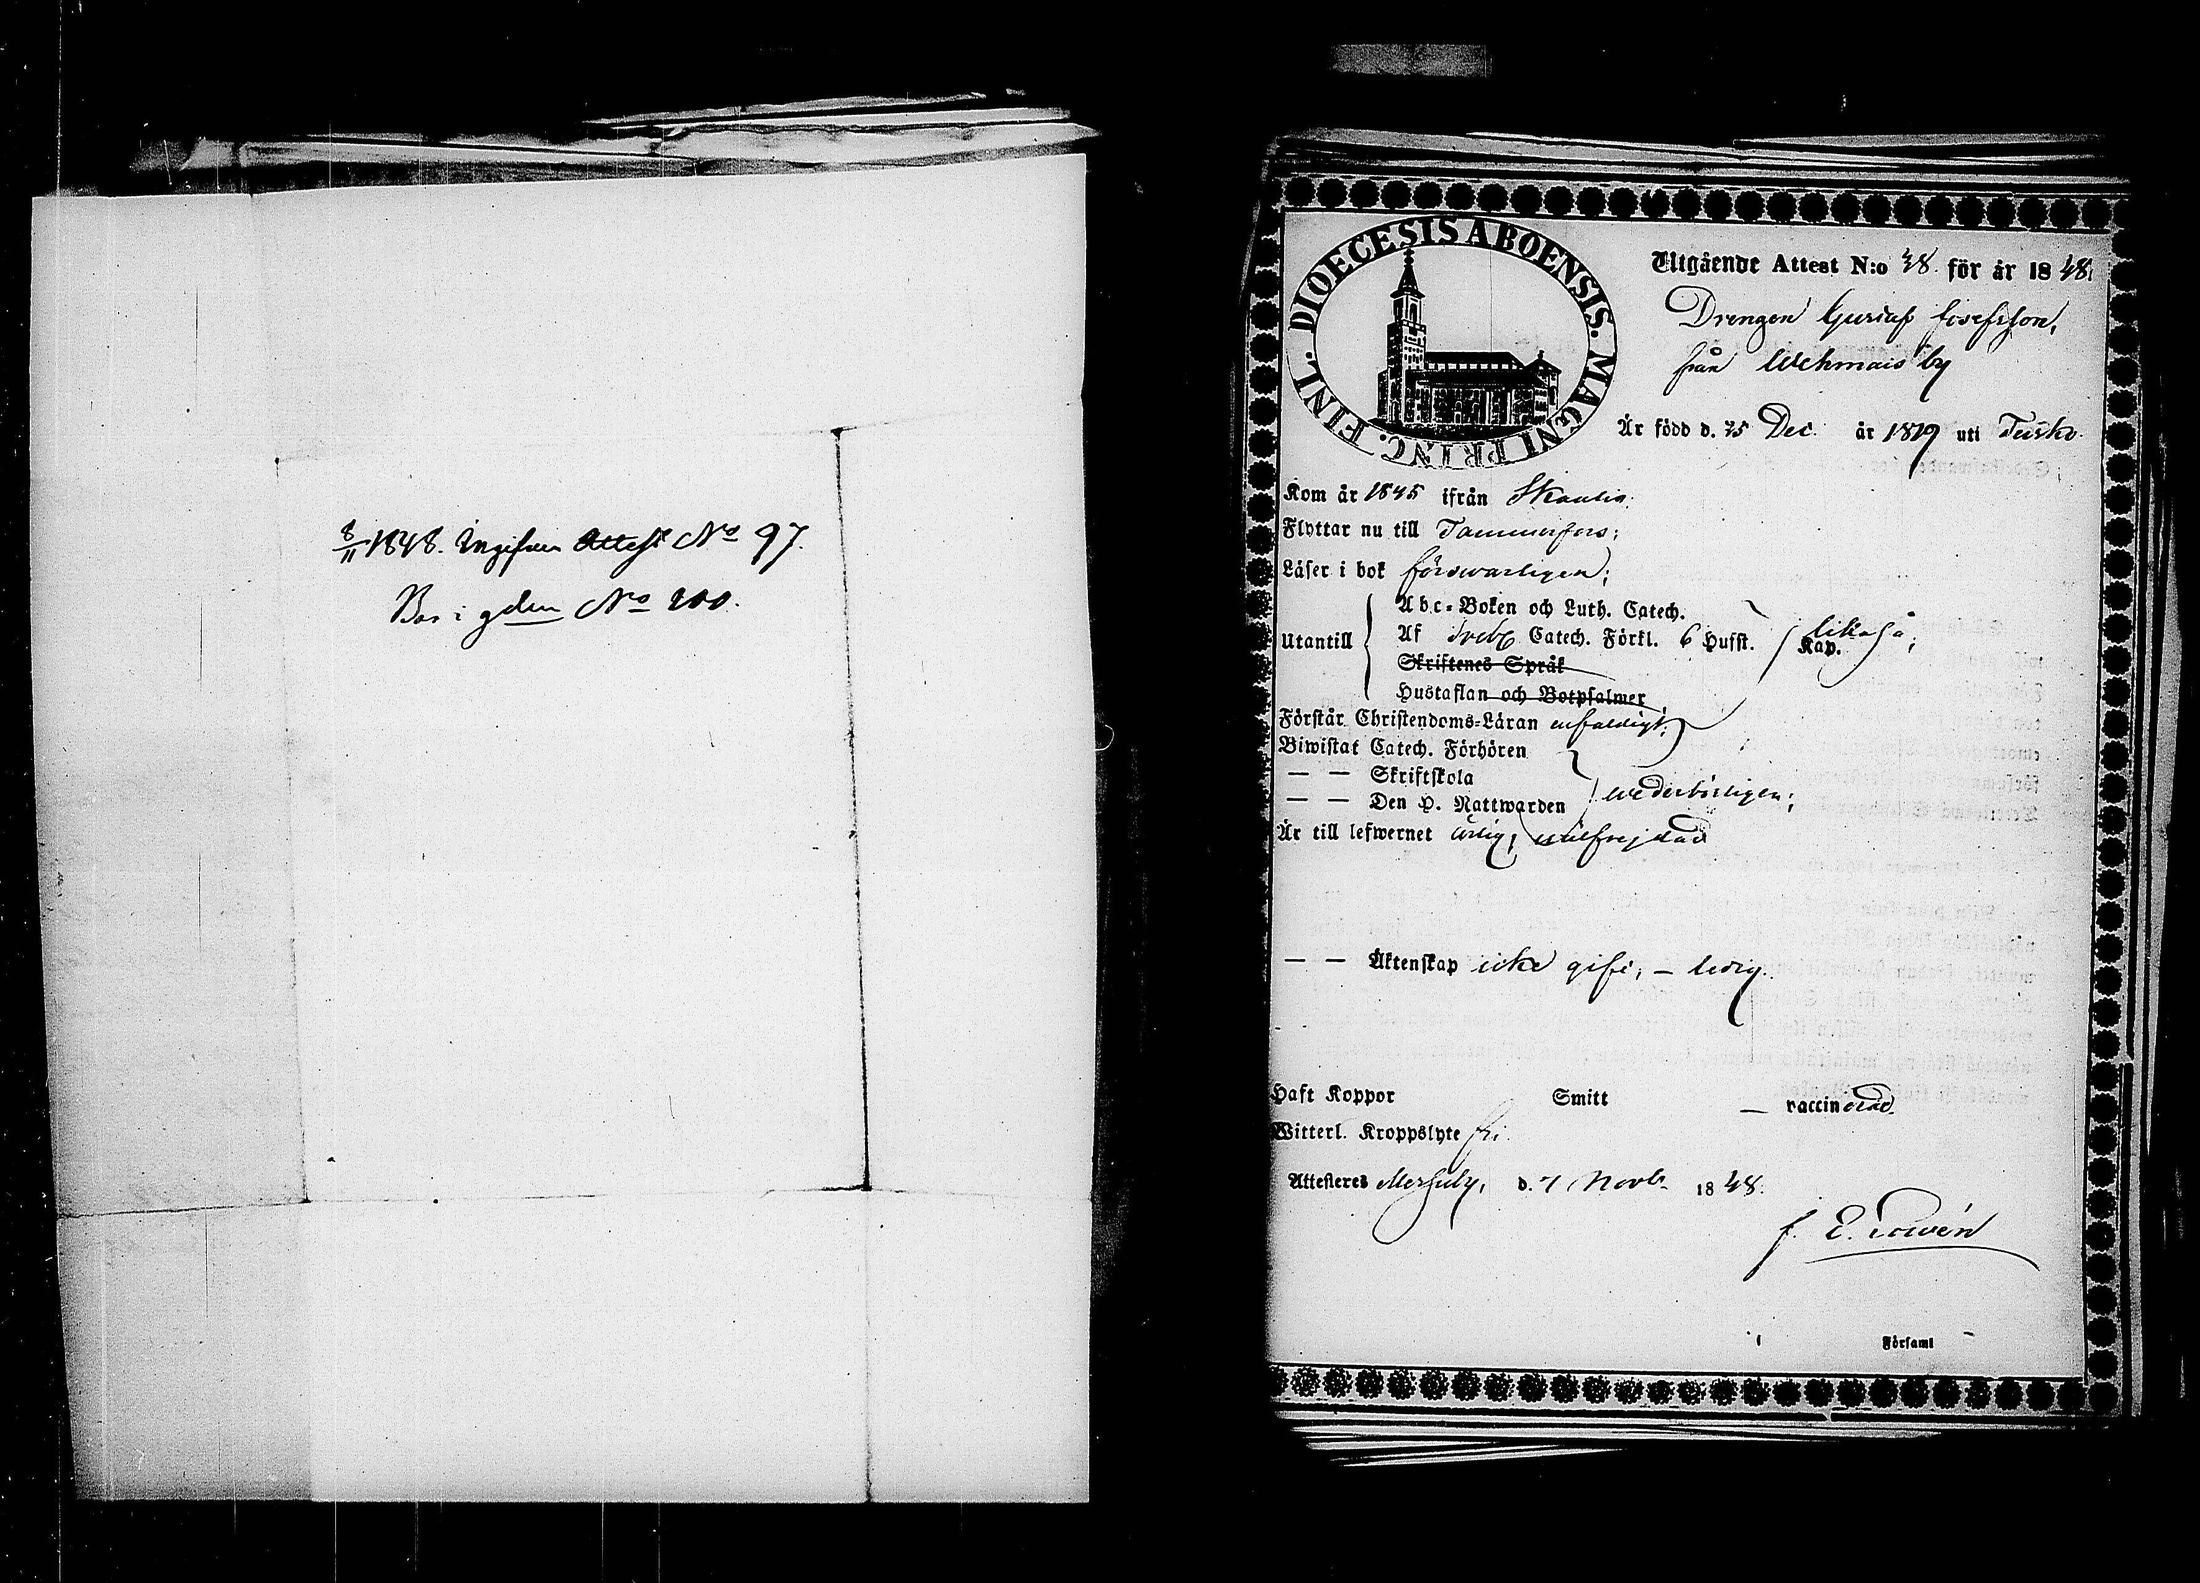 8/11 1848. Ingifven Attest No 97.
Bor i gden No 200.
DIOECESIS ABOENSIS. MAGNI PRINC. FINL.
Utgående Attest N:o 38. för år 1848.
Drengen Gustaf Josefsson,
från Wehmais by
Är född d. 25 Dec. år 1819 uti Tusko.
Kom år 1845 ifrån
Flyttar nu till Tammerfors;
Läser i bok förswarligen;
Abc-Boken och Luth. Catech.
Utantill Af Sveb. Catech. Förkl. 6 Hufst. Kap. likaså;
Skriftenes Språk
Hustaflan och Botpsalmer
Förstår Christendoms-Läran enfaldigt;
Biwistat Catech. Förhören
— — Skriftskola
— — Den H. Nattwarden wederbörligen;
Är till lefwernet ärlig, wälfrejdad
— — Äktenskap icke gift, – ledig.
Haft Koppor Smitt — vaccinerad.
Witterl. Kroppslyte fri.
Attesteres Messuby, d. 7 Novb. 1848.
f. E. Lowén
Församl